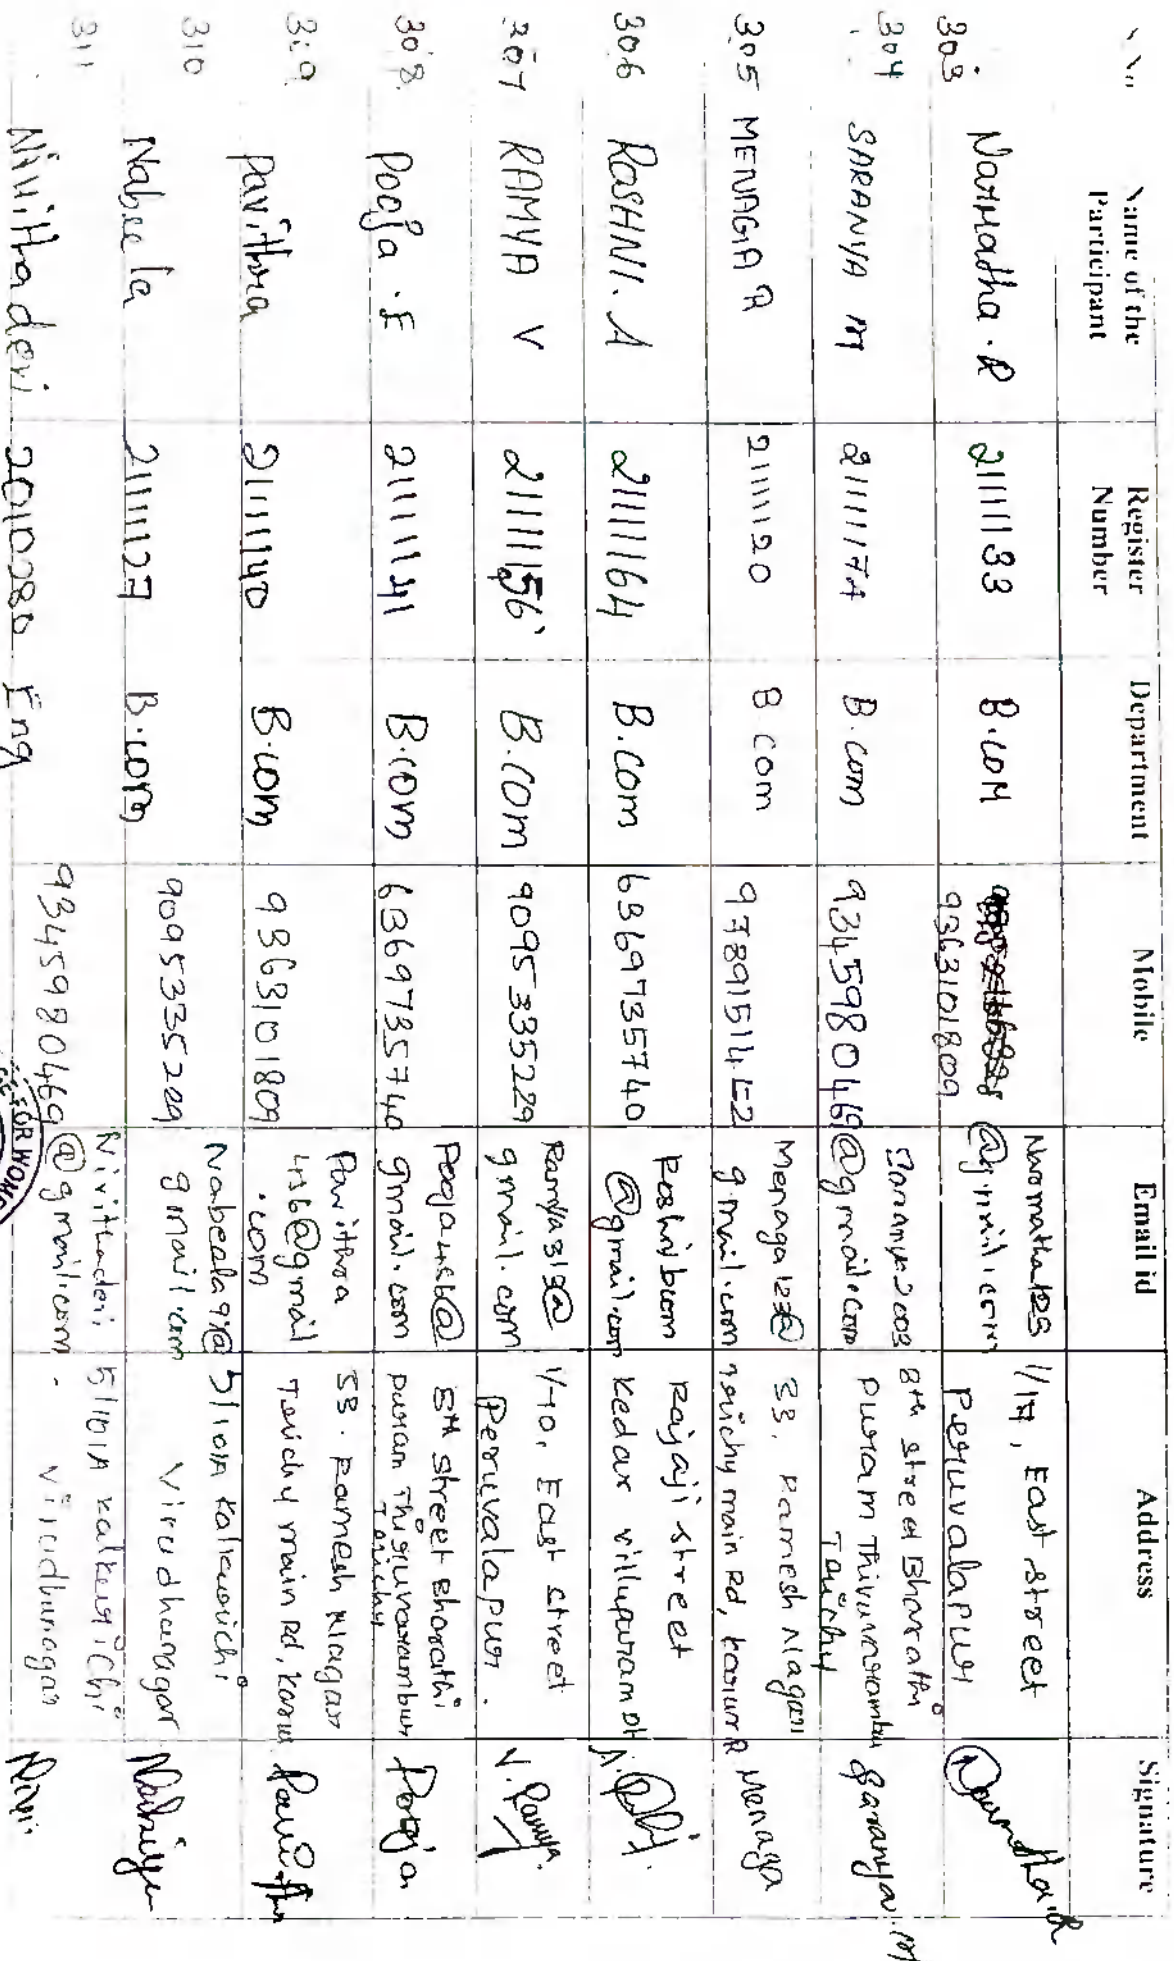 Name of the Participant Register Number Department Mobile Email id Address Signature
303 Narmatha.R 21111133 B.COM 9363101809 Narmatha123@gmail.com 1/17, East street Peruvalapur
304 SARANYA M 2111117A B.com 9345980469 Saranya2003@gmail.com 8th street Bharathi puram Thiruvarambur Trichy Saranya.M
305 MENAGA R 21111120 B com 9789151452 Menaga123@gmail.com 33, Ramesh Nagar Trichy main Rd, Karur Menaga
306 ROSHNI.A 21111164 B.Com 6369735740 Roshnibcom@gmail.com Rajaji street Kedar villupuram Dt.
307 RAMYA V 21111156 B.COM 9095335229 Ramya313@gmail.com 1/70, East street Peruvalapur. V. Ramya.
308 Pooja.E 21111141 B.com 6369735740 Pooja456@gmail.com 5th street Bharathi puram Thiruvarambur Trichy Pooja
309 Pavithra 21111140 B.com 9363101809 Pavithra456@gmail.com 33. Ramesh Nagar Trichy main Rd, Karur Pavithra
310 Nabeela 21111127 B.com 9095335229 Nabeela97@gmail.com 5/101A Virudhanagar
311 Nivithadevi 2010280 Eng 9345980469 Nivithadevi@gmail.com 5/101A Virudhunagar Nivi
FOR WOM